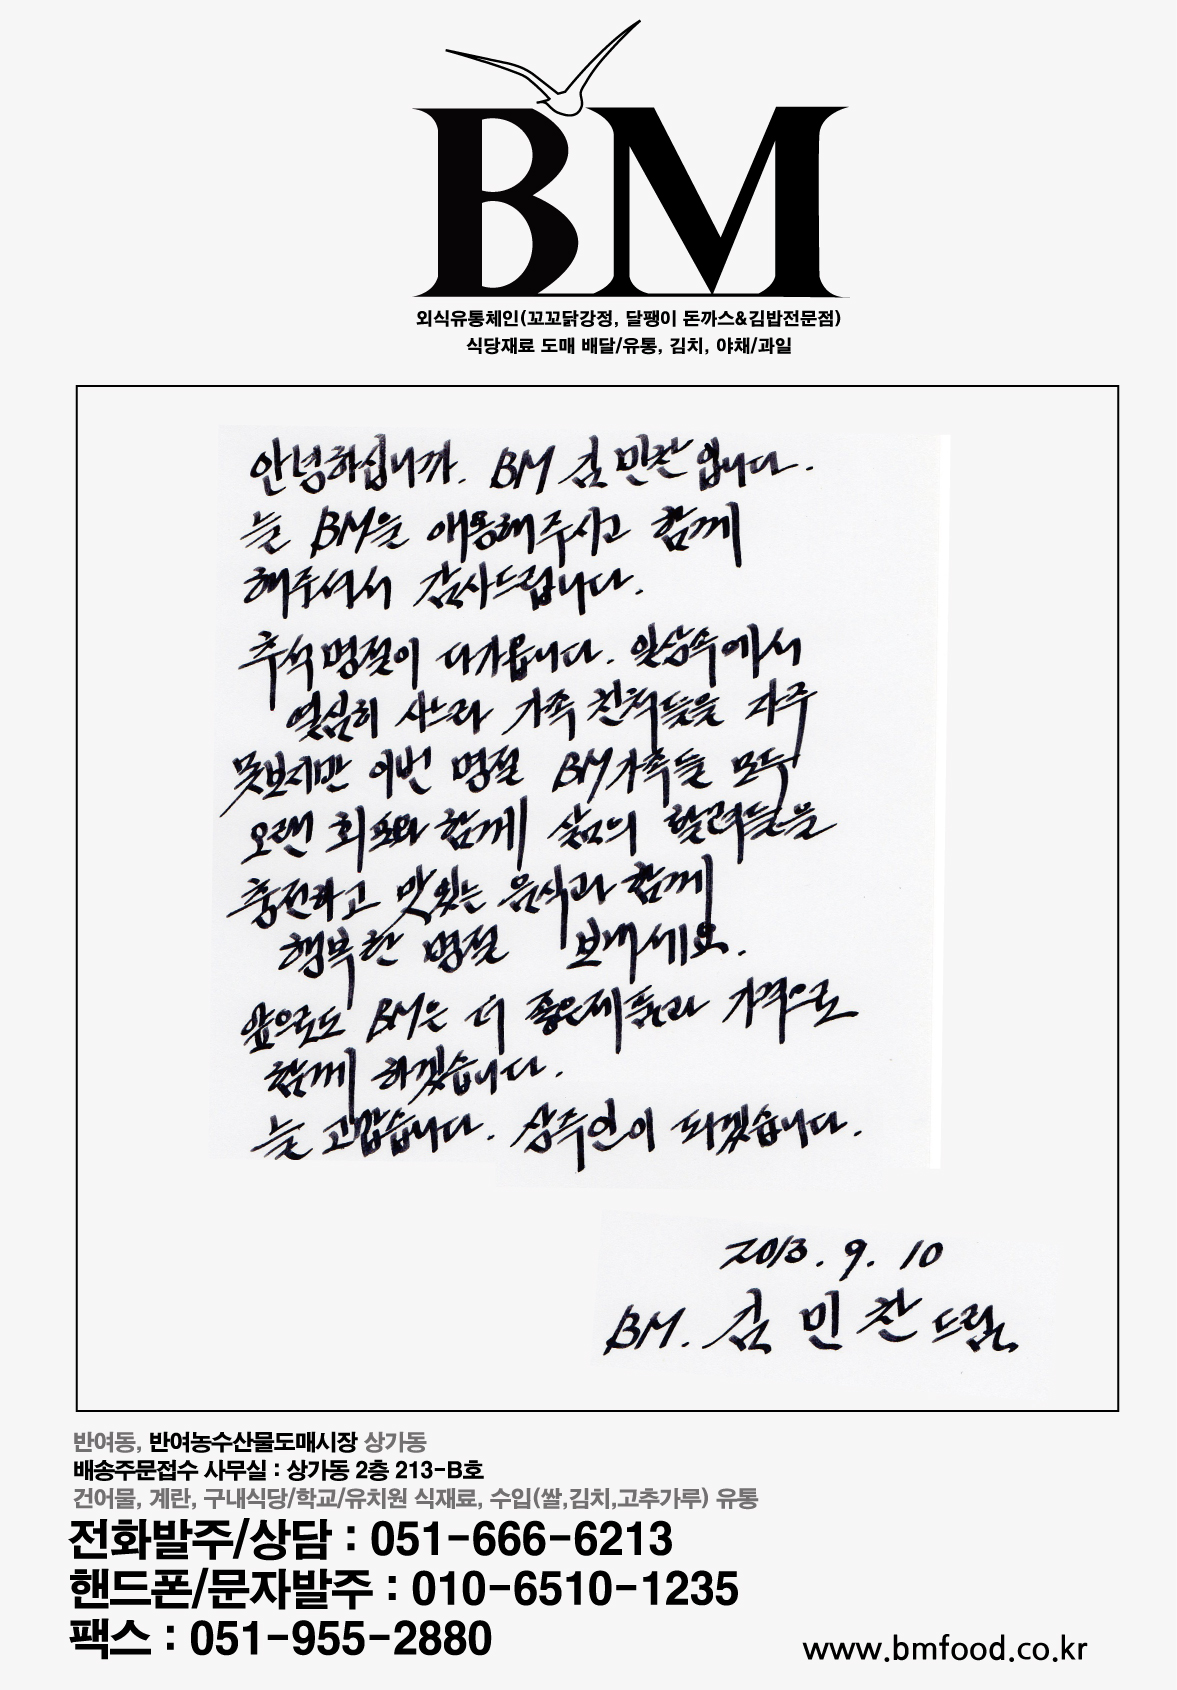 BM
외식유통체인(꼬꼬닭강정, 달팽이 돈까스&김밥전문점)
식당재료 도매 배달/유통, 김치, 야채/과일
안녕하십니까. BM 김민찬입니다.
늘 BM을 애용해주시고 함께
해주셔서 감사드립니다.
추석명절이 다가옵니다. 일상속에서
열심히 사느라 가족 친척들을 자주
못보지만 이번 명절 BM가족들 모두
오랜 회포와 함께 삶의 활력들을
충전하고 맛있는 음식과 함께
행복한 명절 보내세요.
앞으로도 BM은 더 좋은제품과 가격으로
함께 하겠습니다.
늘 고맙습니다. 상주인이 되겠습니다.
2013. 9. 10
BM. 김민찬 드림.
반여동, 반여농수산물도매시장 상가동
배송주문접수 사무실 : 상가동 2층 213-B호
건어물, 계란, 구내식당/학교/유치원 식재료, 수입(쌀,김치,고추가루) 유통
전화발주/상담 : 051-666-6213
핸드폰/문자발주 : 010-6510-1235
팩스 : 051-955-2880
www.bmfood.co.kr